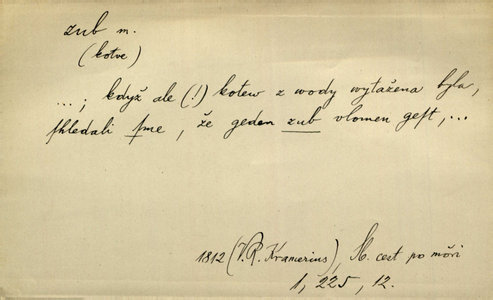 zub m.
(kotve)
...; když ale (!) kotew z wody wytažena byla,
shledali sme, že geden zub vlomen gest,...
1812 (V.R. Kramerius), H. cest po môři
1, 225, 12.